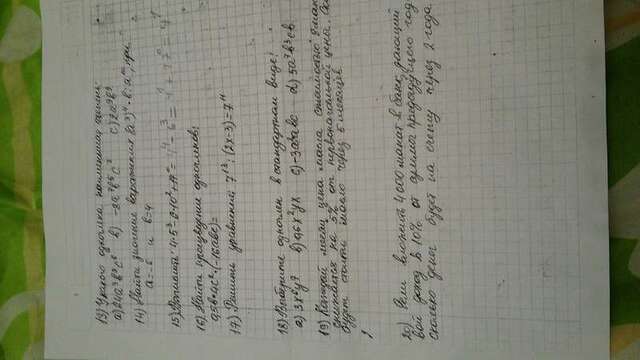 13) У какого одночлена наименшая степень:
а) 24a³b³c⁶ в) -2a⁷b⁶c⁷ с) 2a⁹b⁹
14) Найти значение выражения (a³)⁴ · b : a¹¹, при
a=-6 и b=4
15) Вычислить: 4·5³-6·10²+17⁰=
16) Найти произведение одночленов:
0,5b·4c⁴·(-16abc)=
17) Решить уравнения: 7¹³:(2x-3)=7¹¹
18) Выберите одночлен в стандартном виде!
а) 3x⁶y⁷ в) 0,6x²yx с) -3aabc d) 5a⁷b³cb
19) Каждый месяц цена масла стоимостью 8 ман
снижается на 5% от первоначальной цены.
будет стоить масло через 5 месяцев
?
20) Если вложить 4000 манат в банк, дающий
вой доход в 10% от суммы предыдущего год
сколько денег будет на счету через 2 года